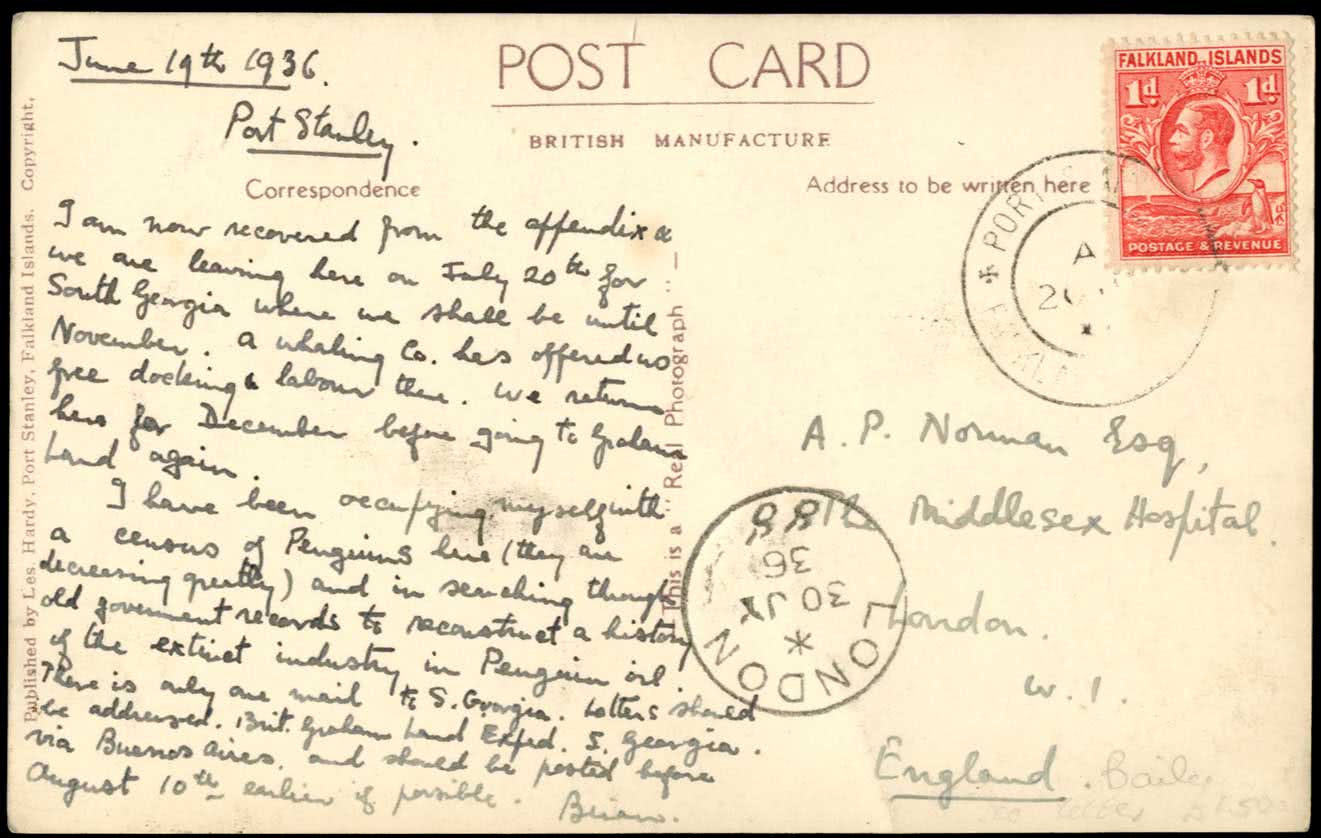 June 19th 1936.
Port Stanley.
POST CARD
BRITISH MANUFACTURE
Correspondence
Address to be written here
I am now recovered from the appendix &
we are leaving here on July 20th for
South Georgia where we shall be until
November. A whaling Co. has offered us
free docking & labour there. We return
here for December before going to Graham
Land again.
I have been occupying myself with
a census of Penguins here (they are
decreasing greatly) and in searching through
old goverment records to reconstruct a history
of the extinct industry in Penguin oil.
There is only one mail to S. Georgia. Letters should
be addressed. Brit. Graham Land Exped. S. Georgia.
via Buenos Aires. and should be posted before
August 10th earlier if possible. Brian.
Published by Les Hardy, Port Stanley, Falkland Islands. Copyright,
This is a "Real Photograph"
FALKLAND ISLANDS
1d 1d
POSTAGE & REVENUE
PORT
A
A. P. Norman Esq,
The Middlesex Hospital.
London.
W. 1.
England.
LONDON
30 JY
36